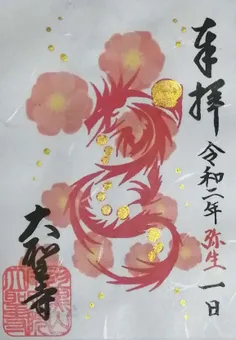 奉拝
令和二年弥生一日
大聖寺